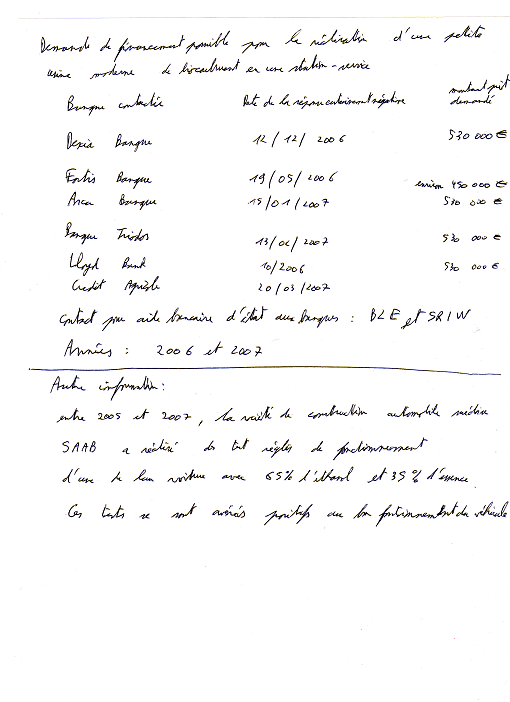 Demande de financement possible pour la réalisation d'une petite
usine moderne de biocarburant en une station-service
Banque contactée Date de la réponse négative montant prêt
demandé
Dexia Banque 12/12/2006 530 000 €
Fortis Banque 19/05/2006 environ 450 000 €
Banque 15/01/2007 530 000 €
Banque Triodos 13/02/2007 530 000 €
Lloyd Bank 10/2006 530 000 €
Credit Agricole 20/03/2007
Contact pour aide bancaire d'état aux banques : et SRIW
Années : 2006 et 2007
Autre information :
entre 2005 et 2007, la société de construction automobile
SAAB a réalisé des de fonctionnement
d'une de leur voiture avec 65% d'éthanol et 35% d'essence.
Ces tests se sont avérés positifs au bon fonctionnement du véhicule